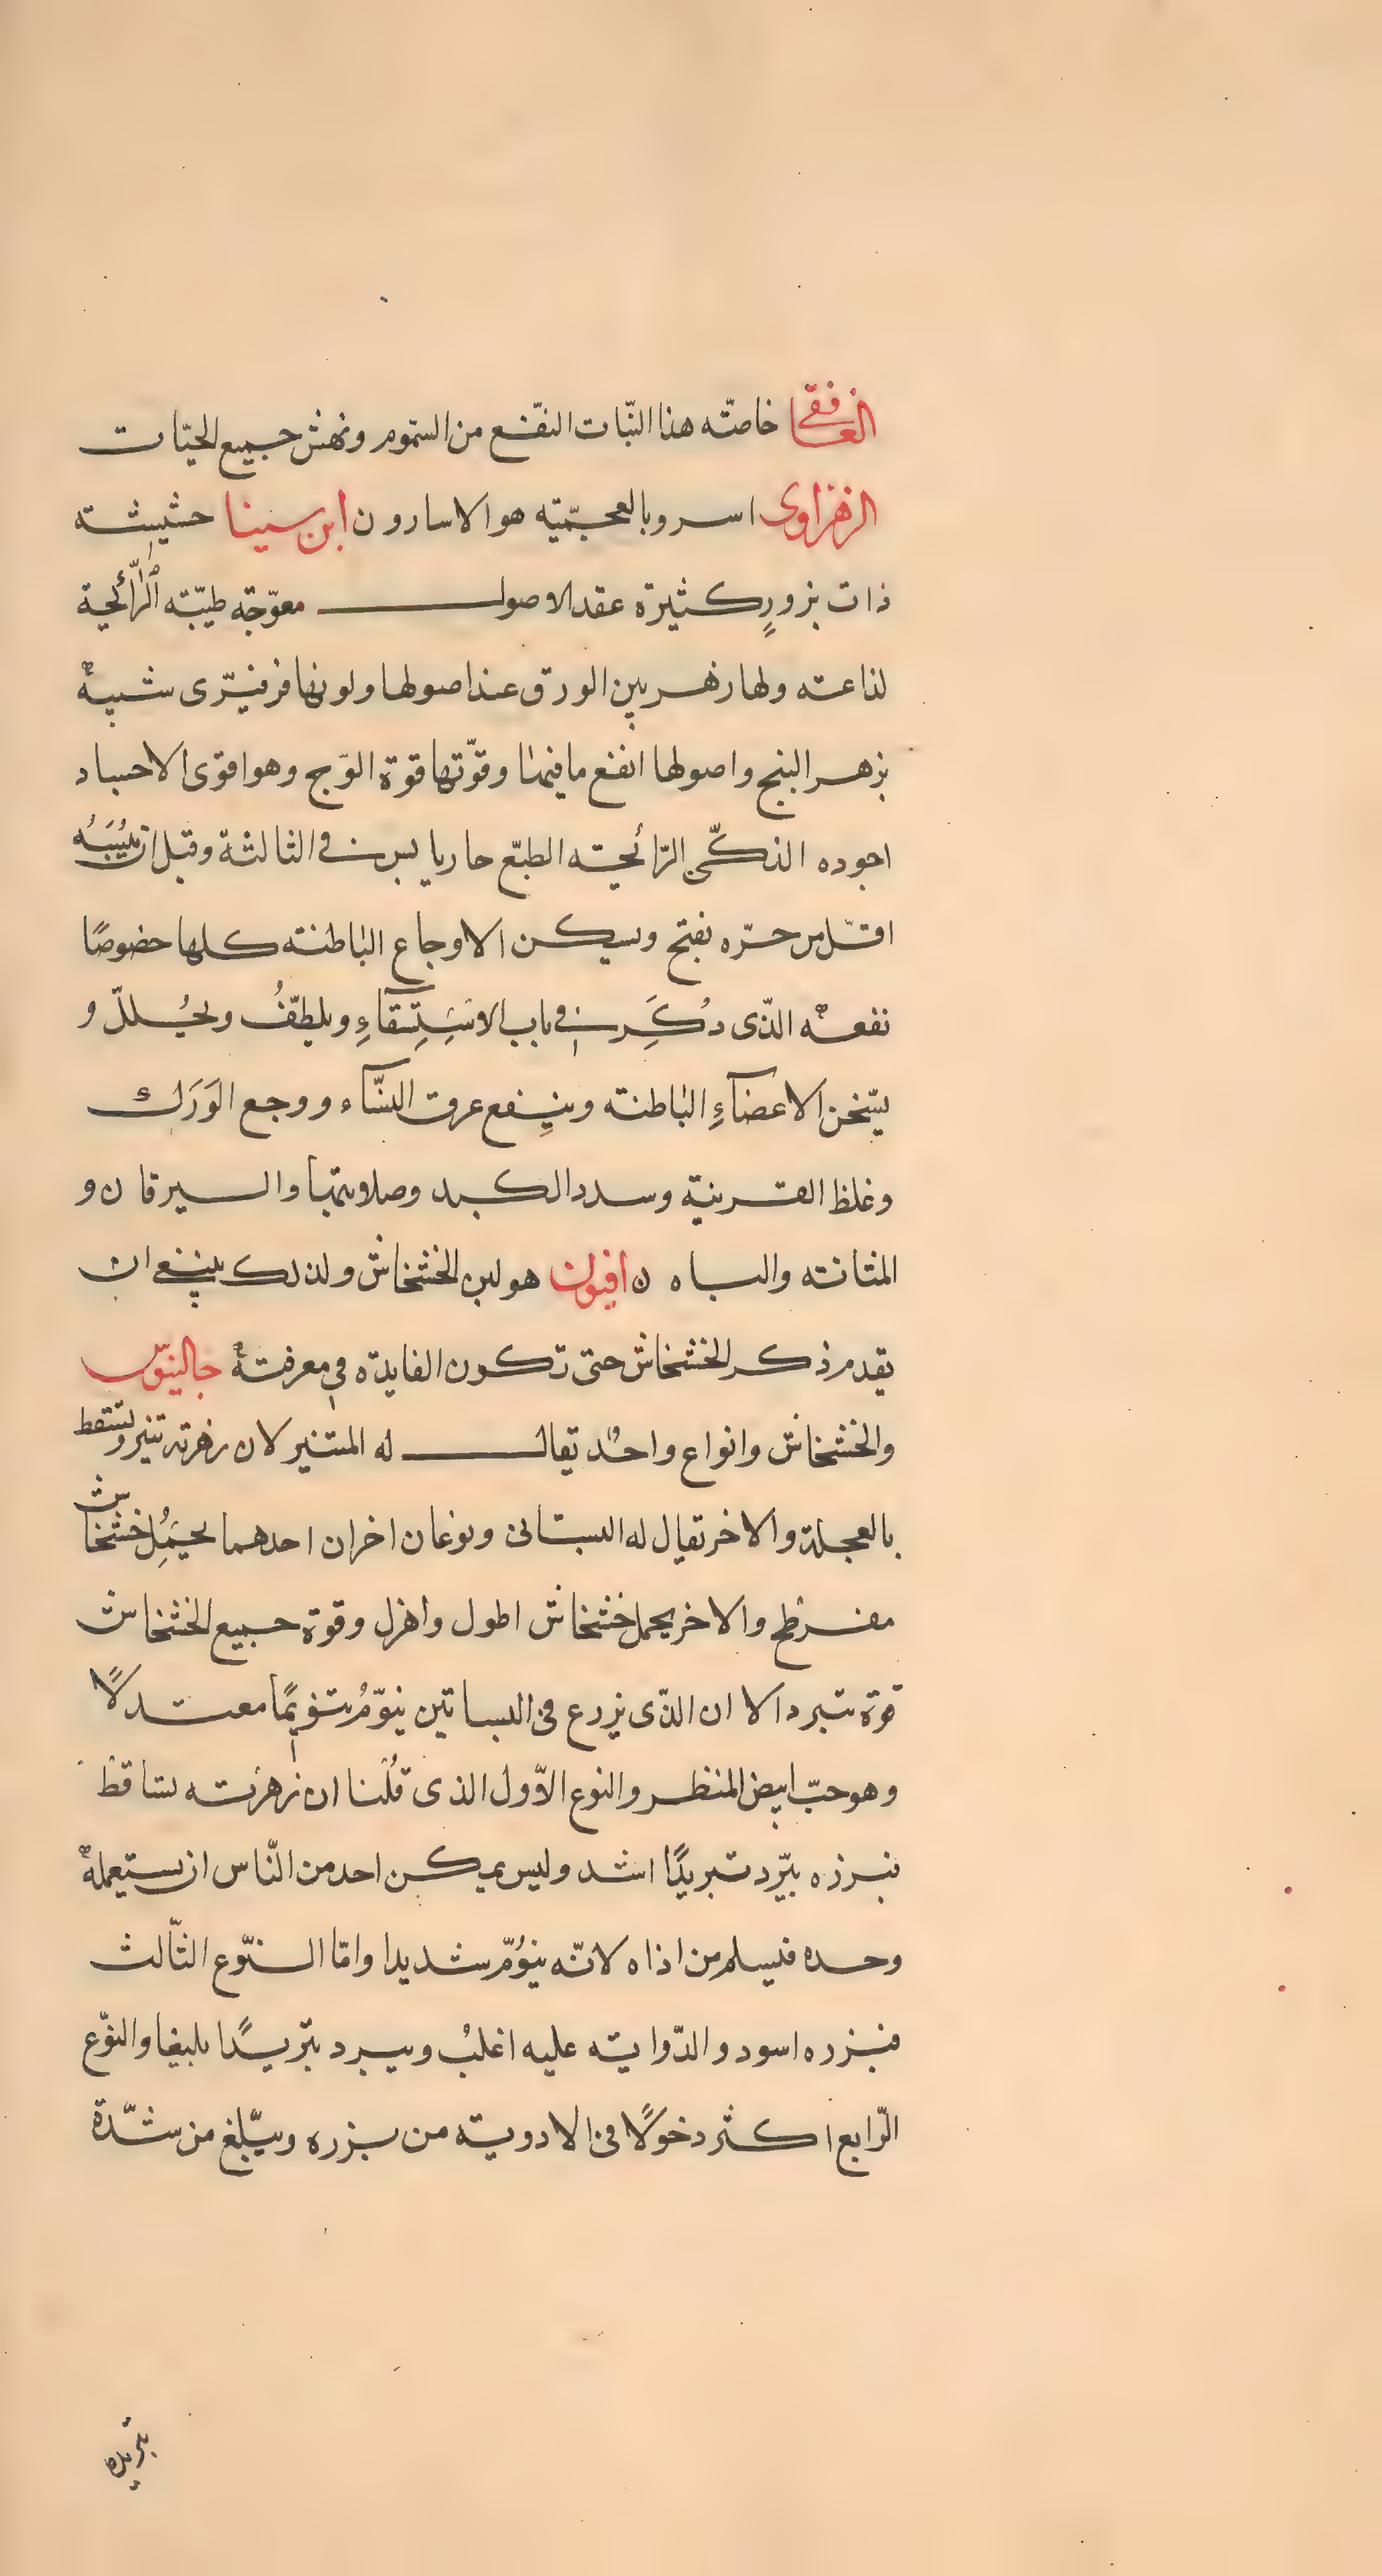 الغافقي خاصّته هذا النّبات النفّع من السّموم ونهش جميع الحيّات
الزهراوى اسرو بالعجميّته هو الاسارون ابن سينا حشيشته
ذات بزورٍ كثيرة عقد الاصول معوّجة طيّبته الرّائحية
لذاعته ولها زهر بين الورق عند اصولها ولونها فرفيرّى شبيهٌ
بزهر البنج واصولها انفع ما فيها وقوّتها قوة الوّج وهو اقوى الاحساد
اجوده الذكّى الرّائحيته الطبّع حار يابس فى الثالثة وقبل ان يُيبَسُه
اقلّ من حرّه يفتح ويسكن الاوجاع الباطنته كلها خصوصًا
نفعهٌ الذّى دُكَر فى باب الاسَتِسقآءِ ويلطّفُ ويُحللّ و
يسّخن الاعضآءِ الباطنته وينِفع عرق النسّآء ووجع الوَرَك
وغلظ القرينيّة وسدد الكبد وصلابتها واليرقان و
المثانته والباه ن افيون هو لبن الخشخاش ولذلك ينبغى ان
يقدم ذكر الخشخاش حتى تكون الفايدة فى معرفتهٌ جالينوّس
والخشخاش وانواع واحدٌ يقال له المنثير لان زهرته تنير وتسقط
بالعجلة والاخر يقال له البستانى ونوعان اخران احدهما يحَمُلِ خشخاش
مفرطح والاخر يحمل خشخاش اطول واهزل وقوة جميع الخشخاش
قوة تبرد الا ان الذّى يزرع فى البساتين ينوّمُ تنويمًا معتدلًا
وهو حبّ ابيض المنظر والنوع الاّول الذى قلُنا ان زهرته تساقط
فبزره يبّرد تبريدًا اشد وليس يمكن احد من النّاس ان يستعملهٌ
وحده فيسلم من اذاه لانّه ينوُمّ شديدا وامّا النّوع الثّالث
فبزره اسود والدّوايته عليه اغلبُ ويبرد تبّريدًا بليغا والنوّع
الرّابع اكثر دخولًا فى الادويته من بزره ويبّلغ من شدّة
تبريده